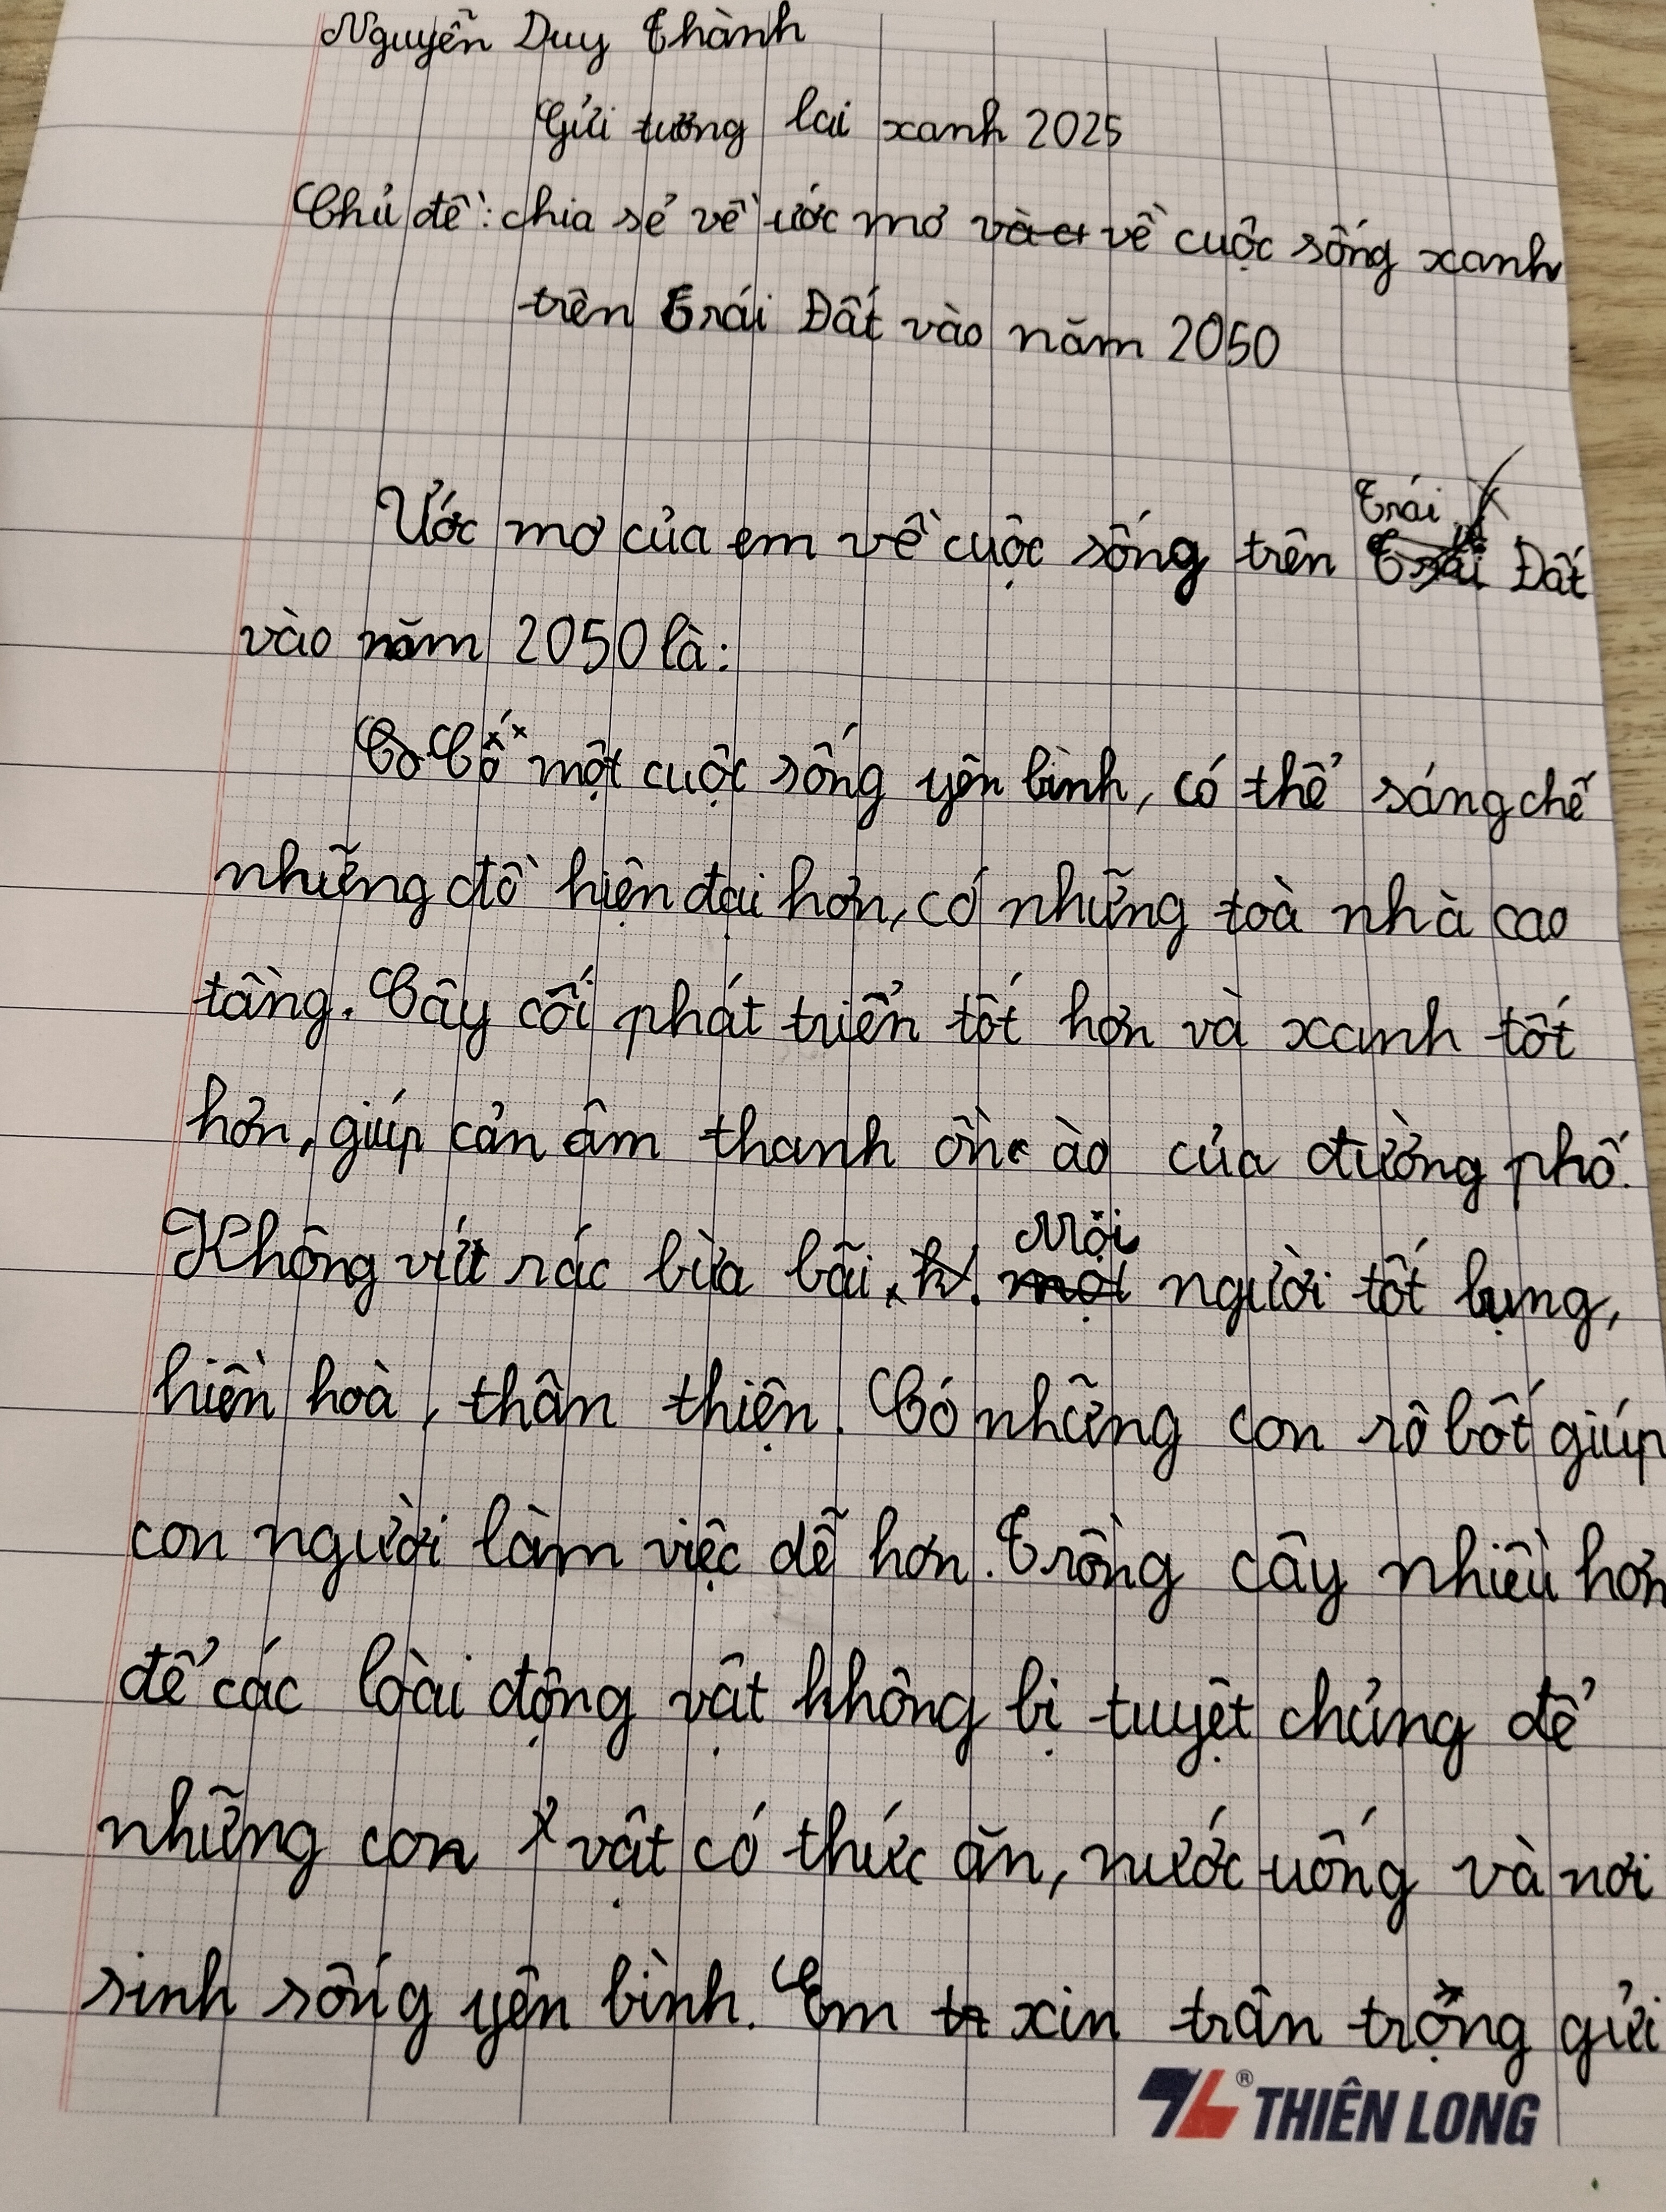 Nguyễn Duy Thành
Gửi tương lai xanh 2025
Chủ đề: chia sẻ về ước mơ về cuộc sống xanh
trên Trái Đất vào năm 2050
Ước mơ của em về cuộc sống trên Trái Đất
vào năm 2050 là:
Có một cuộc sống yên bình, có thể sáng chế
những đồ hiện đại hơn, có những toà nhà cao
tầng. Cây cối phát triển tốt hơn và xanh tốt
hơn, giúp cản âm thanh ồn ào của đường phố.
Không vứt rác bừa bãi. Mọi người tốt bụng,
hiền hoà, thân thiện. Có những con rô bốt giúp
con người làm việc dễ hơn. Trồng cây nhiều hơn
để các loài động vật không bị tuyệt chủng để
những con vật có thức ăn, nước uống và nơi
sinh sống yên bình. Em xin trân trọng gửi
THIÊN LONG